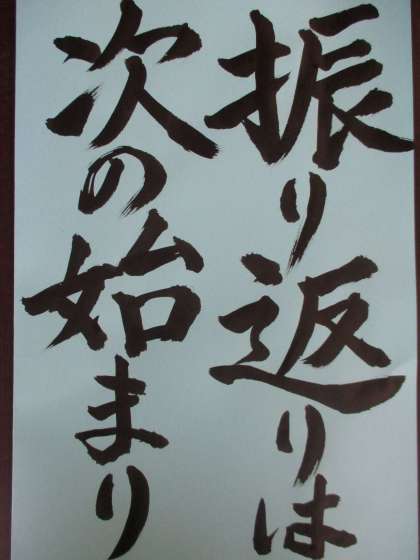 振り返りは
次の始まり